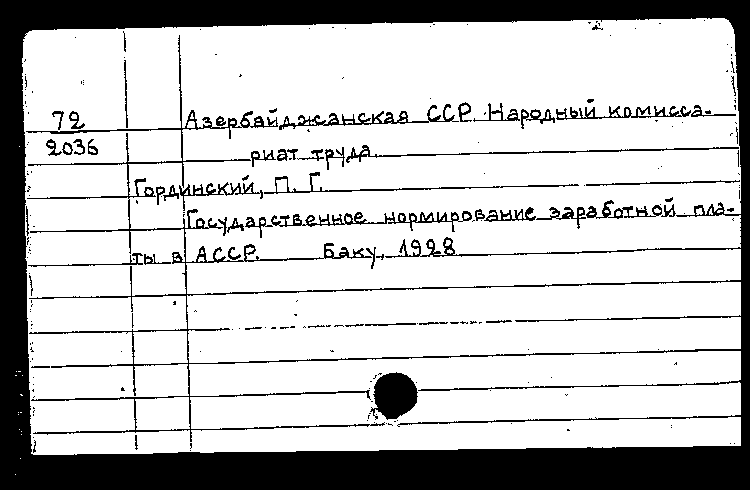 72
2036
Азербайджанская ССР. Народный комисса-
риат труда.
Гординский, П. Г.
Государственное нормирование заработной пла-
ты в АССР. Баку, 1928